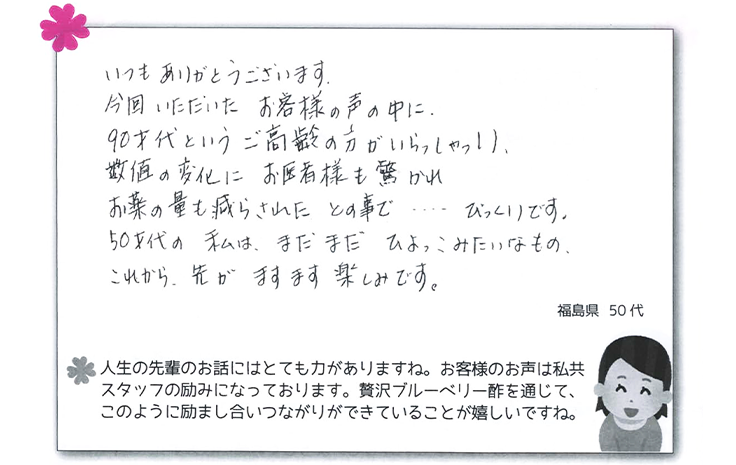 いつもありがとうございます.
今回いただいた お客様の声の中に、
90才代というご高齢の方がいらっしゃっり、
数値の変化に お医者様も驚かれ
お薬の量も減らされた との事で ‥‥ びっくりです。
50才代の 私は、まだまだ ひよっこみたいなもの、
これから、先が ますます 楽しみです。
福島県 50代
人生の先輩のお話にはとても力がありますね。お客様のお声は私共
スタッフの励みになっております。贅沢ブルーベリー酢を通じて、
このように励まし合いつながりができていることが嬉しいですね。